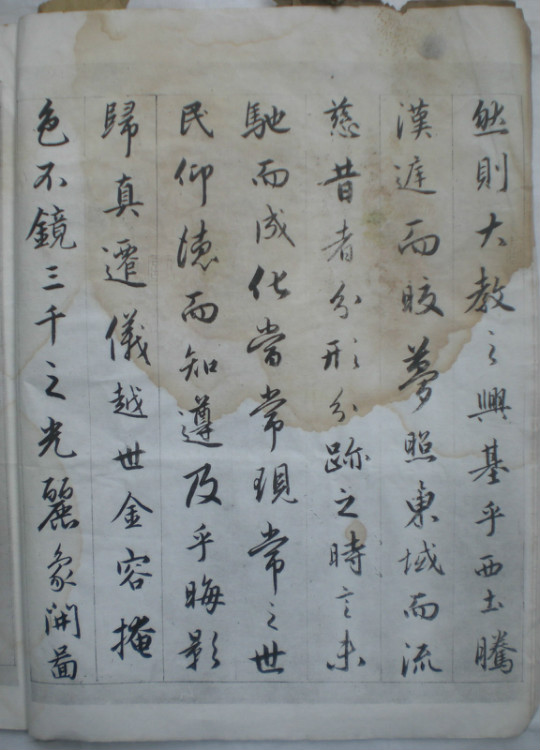 然則大教之興基乎西土騰
漢庭而皎夢照東域而流
慈昔者分形分跡之時言未
馳而成化當常現常之世
民仰德而知遵及乎晦影
歸真遷儀越世金容掩
色不鏡三千之光麗象開圖